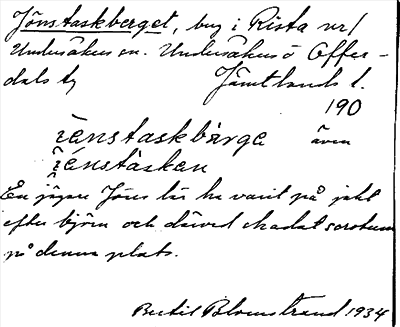 Jönstaskberget, berg i Rista nr 1
Undersåkers sn. Undersåkers o Offer-
dals tg Jämtlands l.
190
även
En jägare Jöns lär ha varit på jakt
efter björn och därvid skadat scrotum
på denna plats.
Bertil Blomstrand 1934